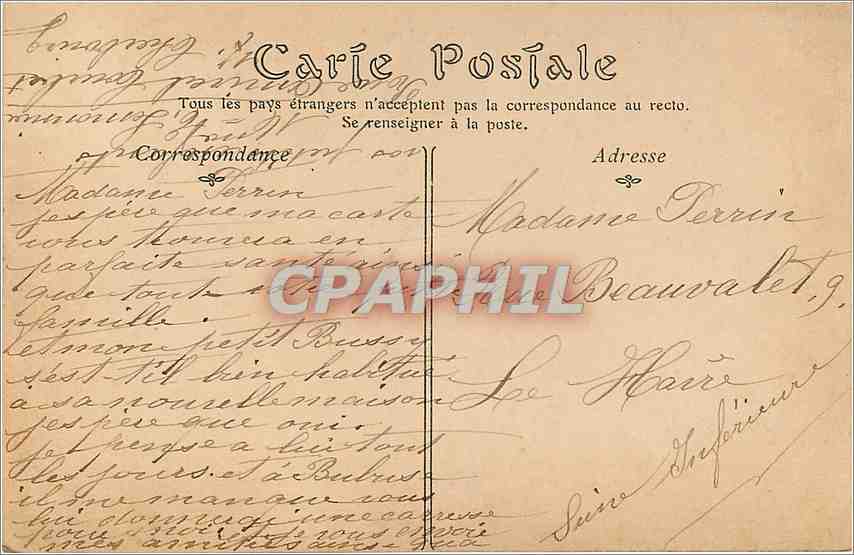 Carte Postale
Tous les pays étrangers n'acceptent pas la correspondance au recto.
Se renseigner à la poste.
Correspondance
Adresse
Madame Perrin
jespère que ma carte
vous trouvera en
parfaite santé ainsi
que toute votre
famille.
et mon petit Bussy
s'est-t'il bien habitué
à sa nouvelle maison
jespère que oui.
je pense a lui tout
les jours. et à Bubus
il me manque vous
lui donnerai une caresse
pour moi je vous envoie
mes amitiés ainsi qua
Madame Perrin
Rue Beauvalet, 9.
Le Havre
Seine Inférieure
CPAPHIL
vos
Rue
Cherbourg